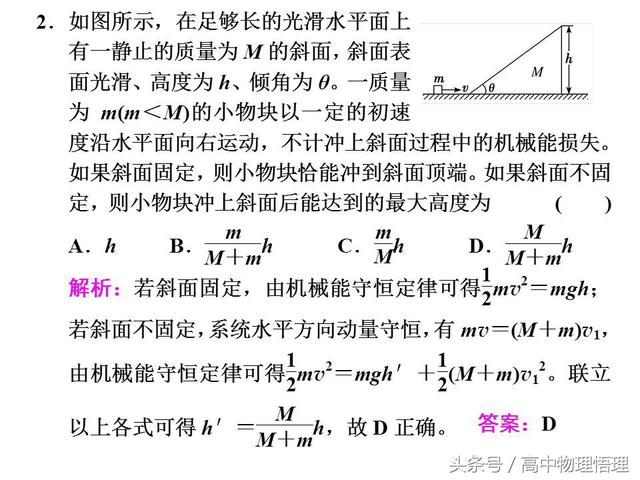 2．如图所示，在足够长的光滑水平面上
有一静止的质量为 M 的斜面，斜面表
面光滑、高度为 h、倾角为 θ。一质量
为 m(m＜M)的小物块以一定的初速
度沿水平面向右运动，不计冲上斜面过程中的机械能损失。
如果斜面固定，则小物块恰能冲到斜面顶端。如果斜面不固
定，则小物块冲上斜面后能达到的最大高度为 (　　)
m v θ M h
A．h B．\frac{m}{M＋m}h C．\frac{m}{M}h D．\frac{M}{M＋m}h
解析：若斜面固定，由机械能守恒定律可得\frac{1}{2}mv²＝mgh；
若斜面不固定，系统水平方向动量守恒，有 mv＝(M＋m)v₁，
由机械能守恒定律可得\frac{1}{2}mv²＝mgh′＋\frac{1}{2}(M＋m)v₁²。联立
以上各式可得 h′＝\frac{M}{M＋m}h，故 D 正确。 答案：D
头条号／高中物理悟理